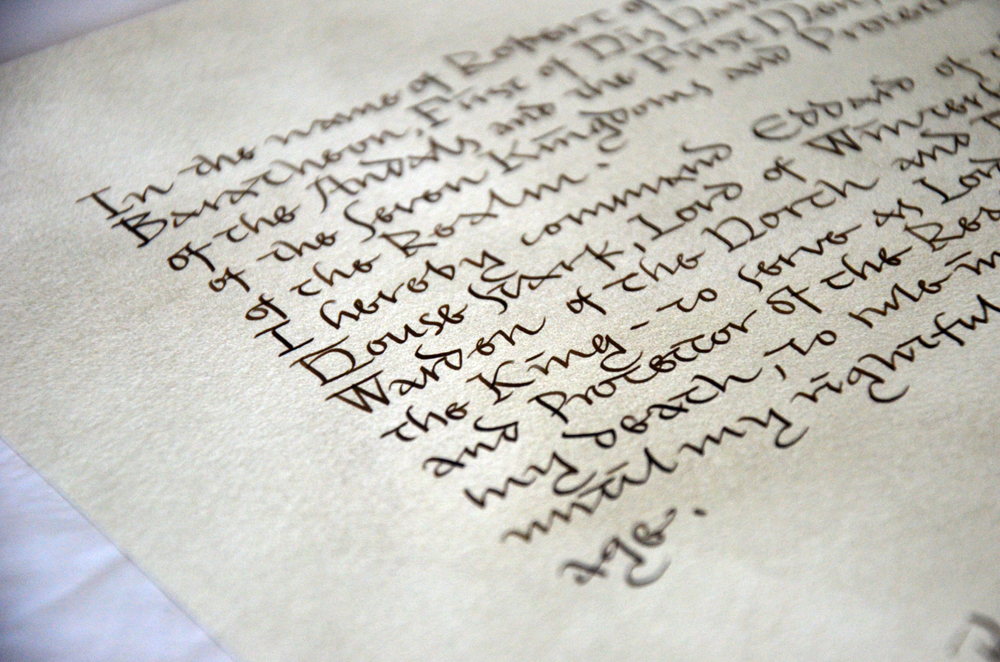 In the name of Robert of
Baratheon, First of His
of the Andals and the First Men,
of the Seven Kingdoms and Protect
of the Realm.
I hereby command Eddard of
House Stark, Lord of Winterf
Warden of the North and
the King – to serve as Lord
and Protector of the Rea
my death, to rule in
until my rightful
age.